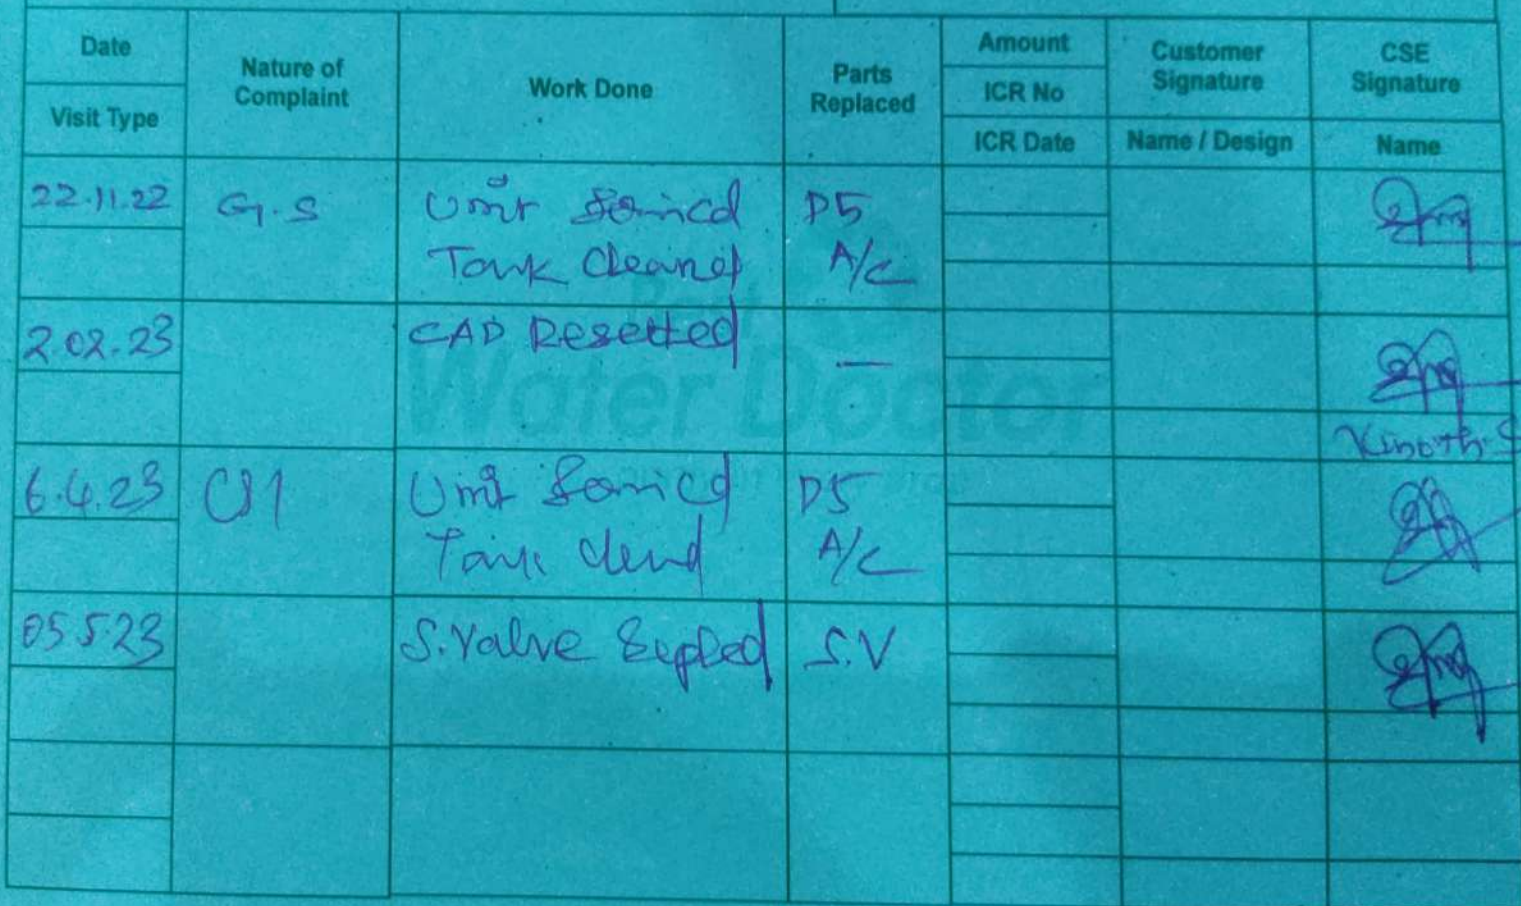 Date
Visit Type
Nature of
Complaint
Work Done
Parts
Replaced
Amount
ICR No
ICR Date
Customer
Signature
Name / Design
CSE
Signature
Name
22.11.22
G.S
Unit
Tank Cleaned
D5
A/C
2.02.23
CAD Resetted
—
6.4.23
Unit
D5
A/C
05.5.23
S.Valve
S.V
Water Doctor